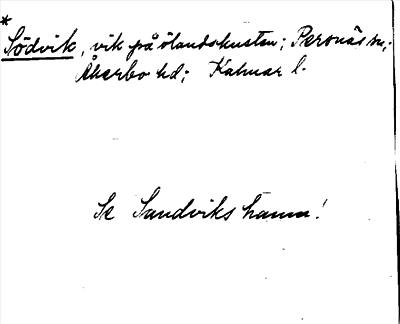 *
Södvik, vik på ölandskusten; Persnäs sn;
Åkerbo hd; Kalmar l.
Se Sandviks hamn!